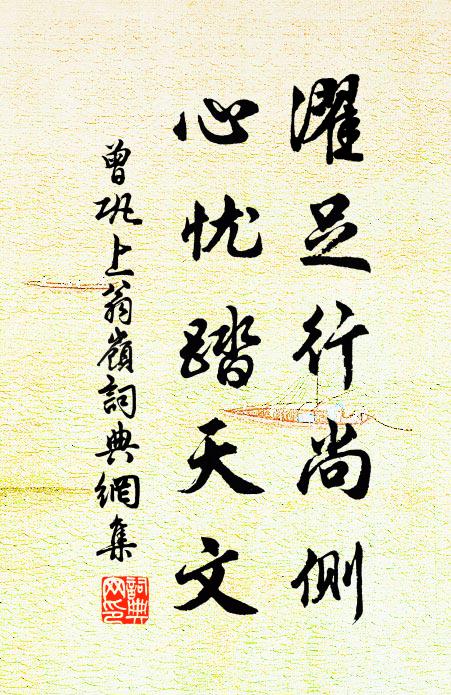 濯足行尚側
心忧踏天文
曾巩上翁嶺詞典網集
詞典
网印